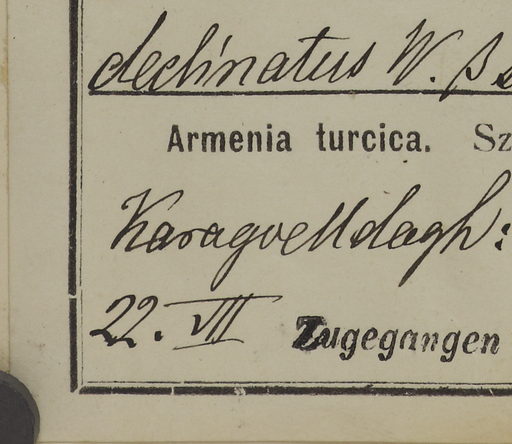 declinatus W. β
Armenia turcica. Sz
Karagoelldagh:
22. VII Zugegangen